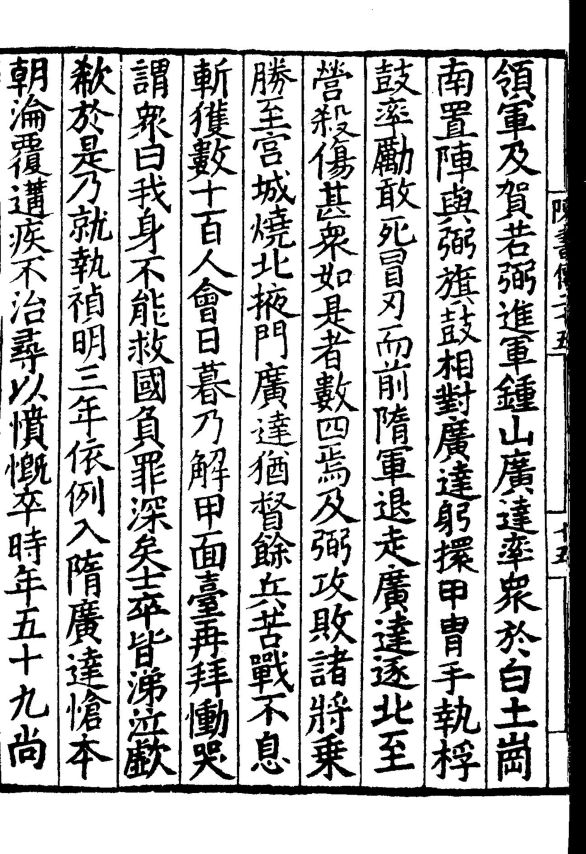 領軍及賀若弼進軍鍾山廣達率衆於白土崗
南置陣與弼旗鼓相對廣達躬擐甲胄手執桴
鼓率勵敢死冒刃而前隋軍退走廣達逐北至
營殺傷甚衆如是者數四焉及弼攻敗諸將乗
勝至宫城燒北掖門廣達猶督餘兵苦戰不息
斬獲數十百人會日暮乃解甲面臺再拜慟哭
謂衆曰我身不能救國負罪深矣士卒皆涕泣歔
欷於是乃就執禎明三年依例入隋廣達愴本
朝淪覆遘疾不治尋以憤慨卒時年五十九尚